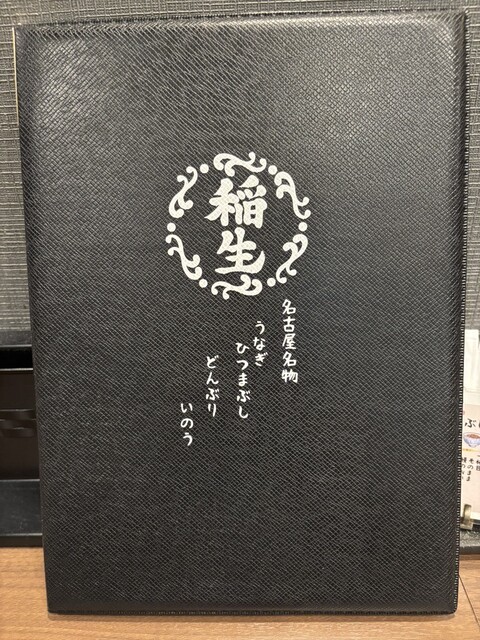 稲生
名古屋名物
うなぎ
ひつまぶし
どんぶり
いのう